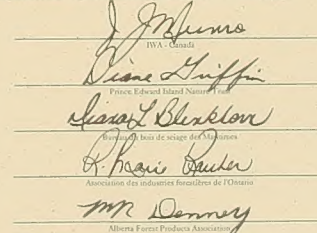 J J Munro
IWA - Canada
Diane Griffin
Prince Edward Island Nature Trust
Diana L Blenkhorn
Bureau du bois de sciage des Maritimes
R. Marie Rauter
Association des industries forestières de l'Ontario
MR Denney
Alberta Forest Products Association